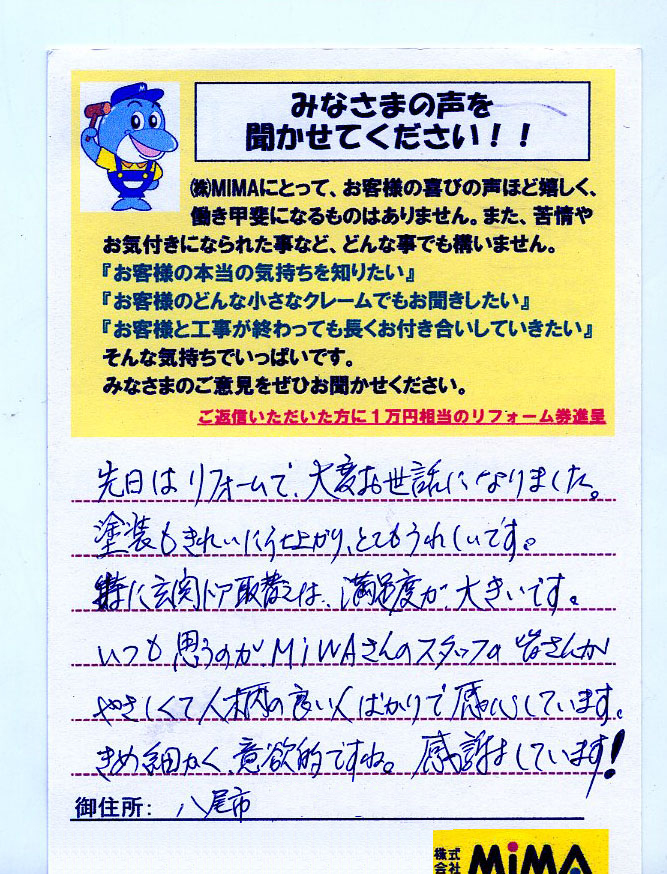 みなさまの声を
聞かせてください！！
㈱MIMAにとって、お客様の喜びの声ほど嬉しく、
働き甲斐になるものはありません。また、苦情や
お気付きになられた事など、どんな事でも構いません。
『お客様の本当の気持ちを知りたい』
『お客様のどんな小さなクレームでもお聞きしたい』
『お客様と工事が終わっても長くお付き合いしていきたい』
そんな気持ちでいっぱいです。
みなさまのご意見をぜひお聞かせください。
ご返信いただいた方に１万円相当のリフォーム券進呈
先日はリフォームで、大変お世話になりました。
塗装もきれいに仕上がり、とてもうれしいです。
特に玄関ドア取替えは、満足度が、大きいです。
いつも思うのが MiWAさんのスタッフの 皆さんが
やさしくて人柄の良い人ばかりで感心しています。
きめ細かく、意欲的ですね。感謝をしています！
御住所： 八尾市
株式会社 MiMA